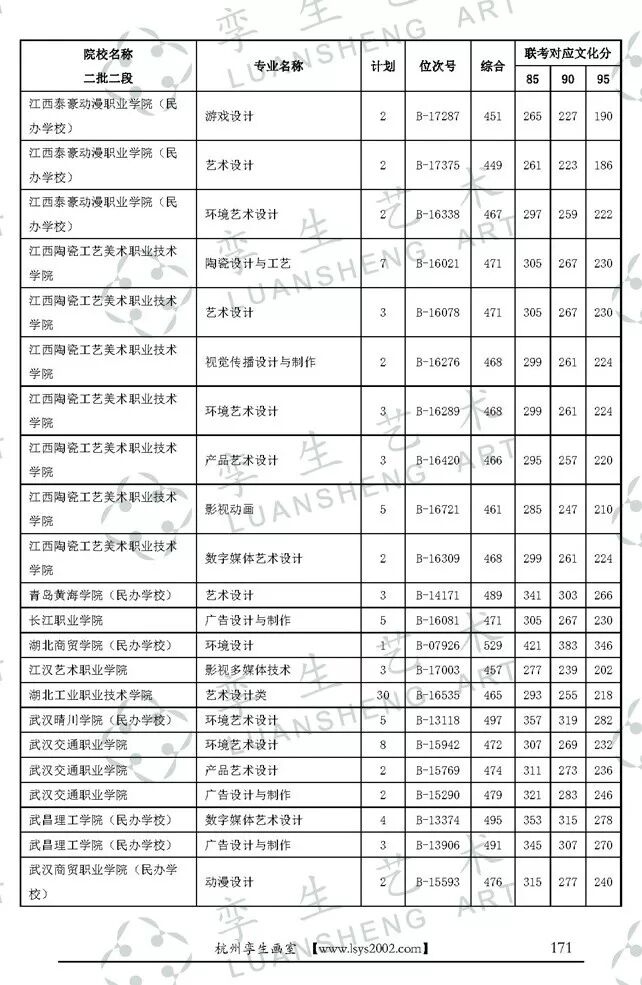 孪生艺术
LUANSHENG ART
院校名称 专业名称 计划 位次号 综合 联考对应文化分
二批二段 85 90 95
江西泰豪动漫职业学院（民 游戏设计 2 B-17287 451 265 227 190
办学校）
江西泰豪动漫职业学院（民 艺术设计 2 B-17375 449 261 223 186
办学校）
江西泰豪动漫职业学院（民 环境艺术设计 2 B-16338 467 297 259 222
办学校）
江西陶瓷工艺美术职业技术 陶瓷设计与工艺 7 B-16021 471 305 267 230
学院
江西陶瓷工艺美术职业技术 艺术设计 3 B-16078 471 305 267 230
学院
江西陶瓷工艺美术职业技术 视觉传播设计与制作 2 B-16276 468 299 261 224
学院
江西陶瓷工艺美术职业技术 环境艺术设计 3 B-16289 468 299 261 224
学院
江西陶瓷工艺美术职业技术 产品艺术设计 3 B-16420 466 295 257 220
学院
江西陶瓷工艺美术职业技术 影视动画 5 B-16721 461 285 247 210
学院
江西陶瓷工艺美术职业技术 数字媒体艺术设计 2 B-16309 468 299 261 224
学院
青岛黄海学院（民办学校） 艺术设计 3 B-14171 489 341 303 266
长江职业学院 广告设计与制作 5 B-16081 471 305 267 230
湖北商贸学院（民办学校） 环境设计 1 B-07926 529 421 383 346
江汉艺术职业学院 影视多媒体技术 3 B-17003 457 277 239 202
湖北工业职业技术学院 艺术设计类 30 B-16535 465 293 255 218
武汉晴川学院（民办学校） 环境艺术设计 5 B-13118 497 357 319 282
武汉交通职业学院 环境艺术设计 8 B-15942 472 307 269 232
武汉交通职业学院 产品艺术设计 2 B-15769 474 311 273 236
武汉交通职业学院 广告设计与制作 2 B-15290 479 321 283 246
武昌理工学院（民办学校） 数字媒体艺术设计 4 B-13374 495 353 315 278
武昌理工学院（民办学校） 广告设计与制作 3 B-13906 491 345 307 270
武汉商贸职业学院（民办学 动漫设计 2 B-15593 476 315 277 240
校）
杭州孪生画室 【www.lsys2002.com】 171